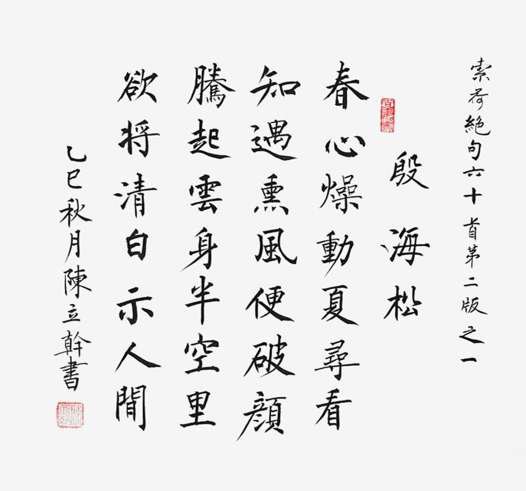 索荷絕句六十首第二版之一
殷海松
春心燥動夏尋看
知遇熏風便破顏
騰起雲身半空里
欲将清白示人間
乙巳秋月陳立幹書